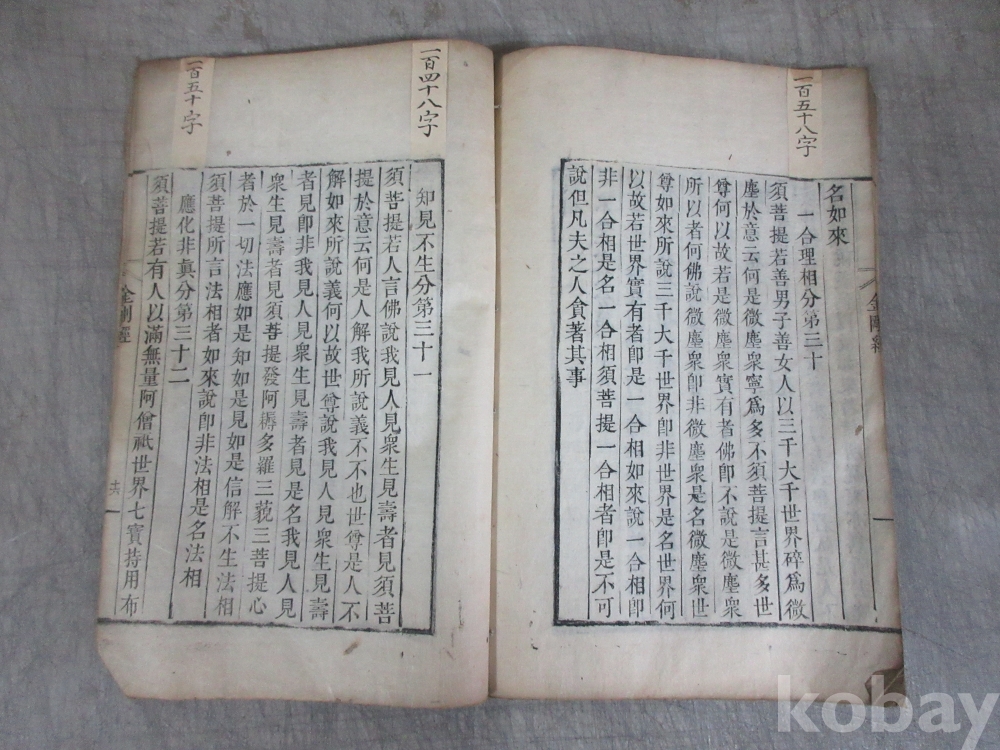 一百五十八字
金剛經
名如來
一合理相分第三十
須菩提若善男子善女人以三千大千世界碎爲微
塵於意云何是微塵衆寧爲多不須菩提言甚多世
尊何以故若是微塵衆實有者佛卽不說是微塵衆
所以者何佛說微塵衆卽非微塵衆是名微塵衆世
尊如來所說三千大千世界卽非世界是名世界何
以故若世界實有者卽是一合相如來說一合相卽
非一合相是名一合相須菩提一合相者卽是不可
說但凡夫之人貪著其事
一百四十八字
知見不生分第三十一
須菩提若人言佛說我見人見衆生見壽者見須菩
提於意云何是人解我所說義不不也世尊是人不
解如來所說義何以故世尊說我見人見衆生見壽
者見卽非我見人見衆生見壽者見是名我見人見
衆生見壽者見須菩提發阿耨多羅三藐三菩提心
者於一切法應如是知如是見如是信解不生法相
須菩提所言法相者如來說卽非法相是名法相
一百五十字
應化非眞分第三十二
須菩提若有人以滿無量阿僧祇世界七寶持用布
金剛經
十六
kobay